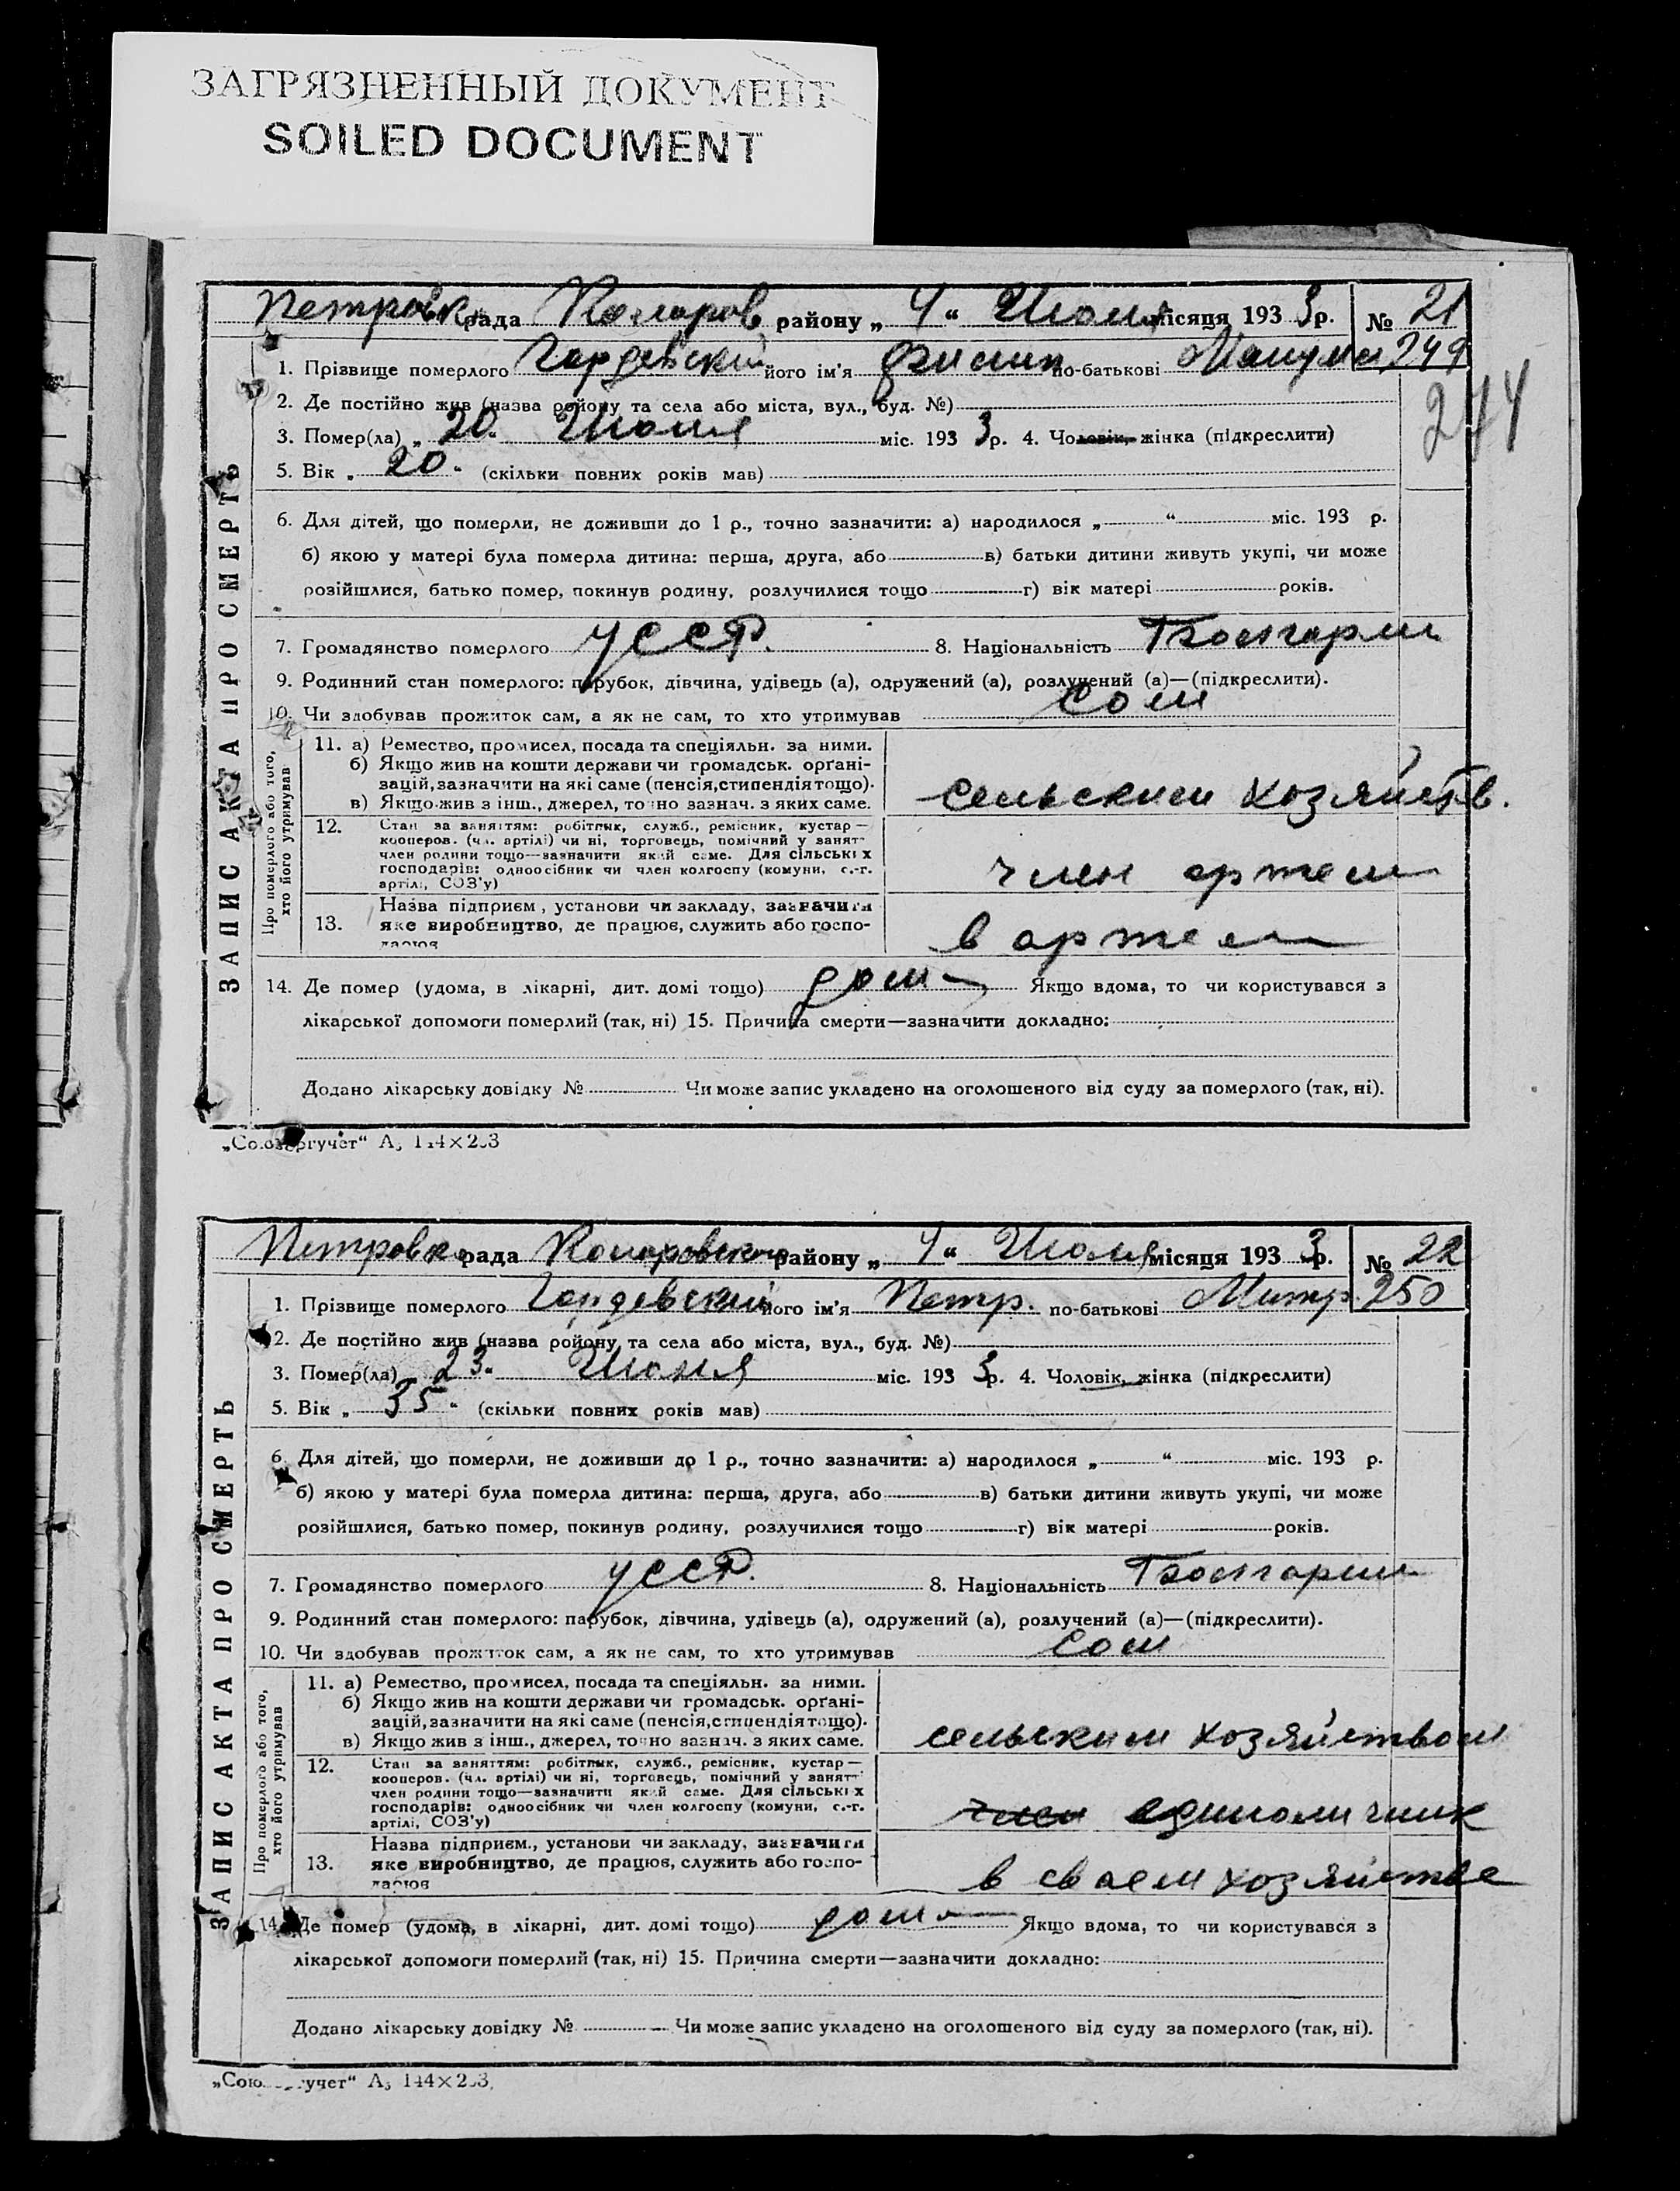 ЗАГРЯЗНЕННЫЙ ДОКУМЕНТ
SOILED DOCUMENT
Петровк рада Коларов району „ 4 “ Июля місяця 193 3 р. № 21
1. Прізвище померлого його ім'я по-батькові 249
274
2. Де постійно жив (назва району та села або міста, вул., буд. №)
3. Помер(ла) „ 20 “ Июня міс. 193 3 р. 4. Чоловік, жінка (підкреслити)
5. Вік „ 20 “ (скільки повних років мав)
6. Для дітей, що померли, не доживши до 1 р., точно зазначити: а) народилося „ “ міс. 193 р.
б) якою у матері була померла дитина: перша, друга, або в) батьки дитини живуть укупі, чи може
розійшлися, батько помер, покинув родину, розлучилися тощо г) вік матері років.
7. Громадянство померлого УССР. 8. Національність Болгарин
9. Родинний стан померлого: парубок, дівчина, удівець (а), одружений (а), розлучений (а)—(підкреслити).
10. Чи здобував прожиток сам, а як не сам, то хто утримував сам
ЗАПИС АКТА ПРО СМЕРТЬ
Про померлого або того, хто його утримував
11. а) Ремество, промисел, посада та спеціяльн. за ними.
б) Якщо жив на кошти держави чи громадськ. орґані-
зацій, зазначити на які саме (пенсія, стипендія тощо).
в) Якщо жив з інш., джерел, точно зазнач. з яких саме.
сельским хозяйств.
12. Стан за заняттям: робітник, служб., ремісник, кустар—
кооперов. (чл. артілі) чи ні, торговець, помічний у занят-
член родини тощо—зазначити який саме. Для сільських
господарів: одноосібник чи член колгоспу (комуни, с.-г.
артілі, СОЗ'у)
член артели
13. Назва підприєм., установи чи закладу, зазначити
яке виробництво, де працює, служить або госпо-
дарює
в артели
14. Де помер (удома, в лікарні, дит. домі тощо) дома Якщо вдома, то чи користувався з
лікарської допомоги померлий (так, ні) 15. Причина смерти—зазначити докладно:
Додано лікарську довідку № Чи може запис укладено на оголошеного від суду за померлого (так, ні).
„Союзоргучет“ А₅ 144×203
Петровка рада Коларовского району „ 4 “ Июля місяця 193 3 р. № 22
1. Прізвище померлого Гордевский його ім'я Петр. по-батькові Митр. 250
2. Де постійно жив (назва району та села або міста, вул., буд. №)
3. Помер(ла) 23 “ Июня міс. 193 3 р. 4. Чоловік, жінка (підкреслити)
5. Вік „ 35 “ (скільки повних років мав)
6. Для дітей, що померли, не доживши до 1 р., точно зазначити: а) народилося „ “ міс. 193 р.
б) якою у матері була померла дитина: перша, друга, або в) батьки дитини живуть укупі, чи може
розійшлися, батько помер, покинув родину, розлучилися тощо г) вік матері років.
7. Громадянство померлого УССР. 8. Національність Болгарин
9. Родинний стан померлого: парубок, дівчина, удівець (а), одружений (а), розлучений (а)—(підкреслити).
10. Чи здобував прожиток сам, а як не сам, то хто утримував сам
ЗАПИС АКТА ПРО СМЕРТЬ
Про померлого або того, хто його утримував
11. а) Ремество, промисел, посада та спеціяльн. за ними.
б) Якщо жив на кошти держави чи громадськ. орґані-
зацій, зазначити на які саме (пенсія, стипендія тощо).
в) Якщо жив з інш., джерел, точно зазнач. з яких саме.
сельским хозяйством
12. Стан за заняттям: робітник, служб., ремісник, кустар—
кооперов. (чл. артілі) чи ні, торговець, помічний у занят-
член родини тощо—зазначити який саме. Для сільських
господарів: одноосібник чи член колгоспу (комуни, с.-г.
артілі, СОЗ'у)
член единоличник
13. Назва підприєм., установи чи закладу, зазначити
яке виробництво, де працює, служить або госпо-
дарює
в сваем хозяйстве
14. Де помер (удома, в лікарні, дит. домі тощо) дома Якщо вдома, то чи користувався з
лікарської допомоги померлий (так, ні) 15. Причина смерти—зазначити докладно:
Додано лікарську довідку № Чи може запис укладено на оголошеного від суду за померлого (так, ні).
„Союзоргучет“ А₅ 144×203